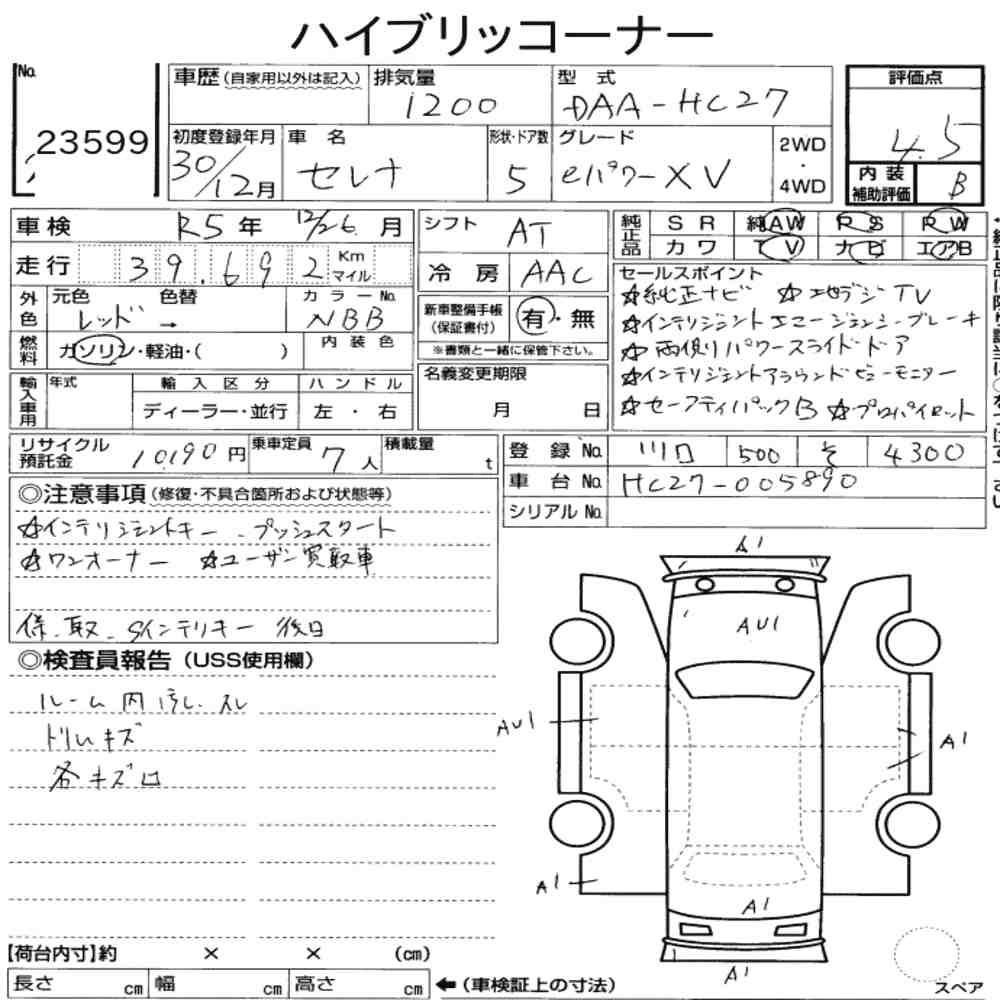 ハイブリッコーナー
No.
23599
車歴（自家用以外は記入）
排気量
1200
型 式
DAA-HC27
評価点
4.5
初度登録年月
30/12月
車 名
セレナ
形状・ドア数
5
グレード
eパワーXV
2WD
・
4WD
内 装
補助評価
B
車検
R5年 12/26月
シフト
AT
純正品
SR
純AW
RS
RW
カワ
TV
ナビ
エアB
走行
39.692
Km
マイル
冷 房
AAC
セールスポイント
☆純正ナビ ☆地デジTV
☆インテリジェントエマージェンシーブレーキ
☆両側パワースライドドア
☆インテリジェントアラウンドビューモニター
☆セーフティパックB ☆プロパイロット
外色
元色
レッド→
色替
カラーNo.
NBB
新車整備手帳
（保証書付）
有・無
※書類と一緒に保管下さい。
燃料
ガソリン・軽油・（ ）
内装色
名義変更期限
月 日
輸入車用
年式
輸入区分
ディーラー・並行
ハンドル
左 ・ 右
リサイクル
預託金
10190円
乗車定員
7人
積載量
t
登 録 No.
川口
500
そ
4300
車 台 No.
HC27-005890
シリアル No.
◎注意事項（修復・不具合箇所および状態等）
☆インテリジェントキー、プッシュスタート
☆ワンオーナー ☆ユーザー買取車
保、取、Sインテリキー 後日
◎検査員報告（USS使用欄）
ルーム内汚レ、スレ
トリムキズ
各キズ凹
A1
AU1
AU1
A1
A1
A1
A1
【荷台内寸】約 × × （cm）
長さ cm
幅 cm
高さ cm
←（車検証上の寸法）
スペア